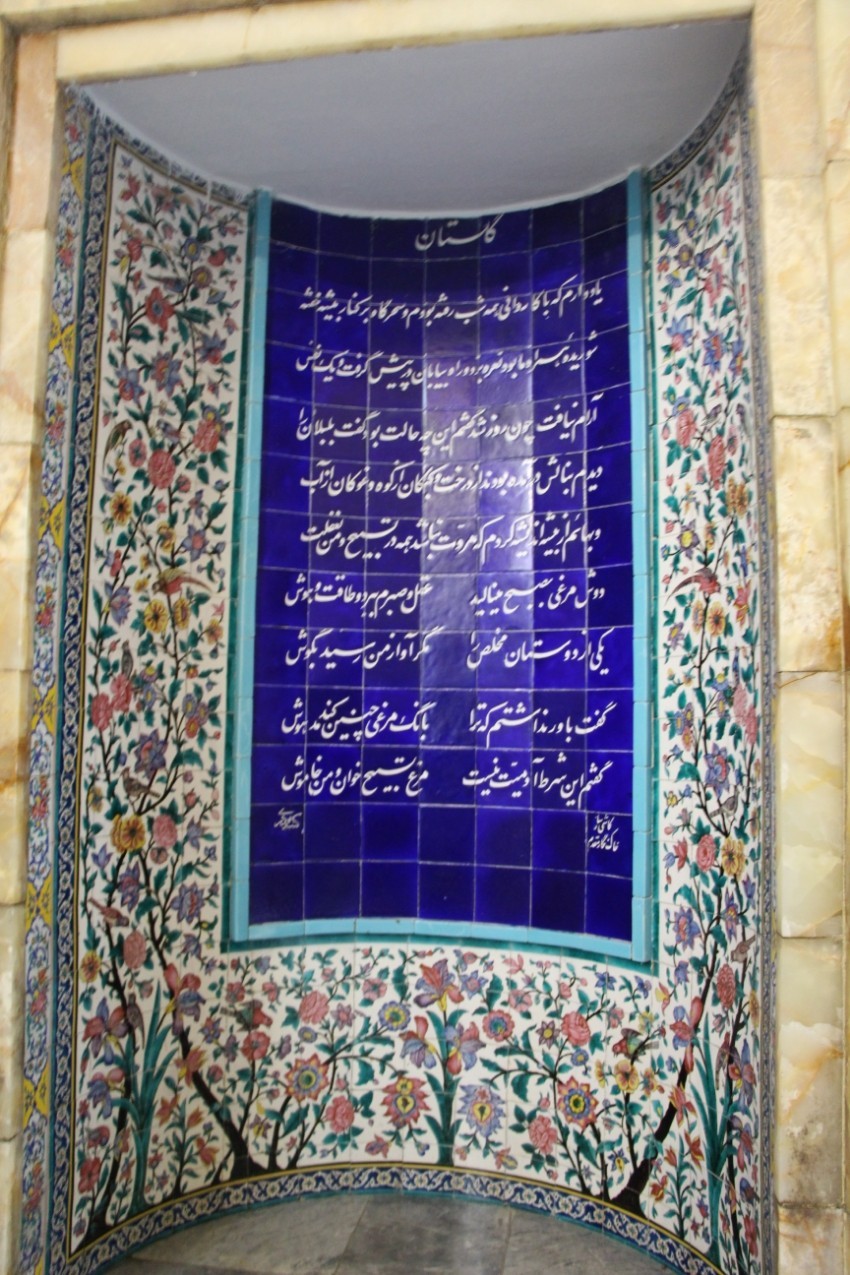 گلستان
یاد دارم که با کاروانی همه شب رفته بودم و سحرگاه بر کنار بیشه خفته
شوریده‌ای همراه ما بود نعره بزد و راه بیابان در پیش گرفت و یک نفس
آرام نیافت چون روز شد گفتم این چه حالت بود گفت بلبلان را
دیدم بنالش درآمده بودند از درخت و کبکان از کوه و غوکان از آب
و بهائم از بیشه اندیشه کردم که مروت نباشد همه در تسبیح و من بغفلت
دوش مرغی بصبح مینالید عقل و صبرم ببرد و طاقت و هوش
یکی از دوستان مخلص را مگر آواز من رسید بگوش
گفت باور نداشتم که ترا بانگ مرغی چنین کند مدهوش
گفتم این شرط آدمیت نیست مرغ تسبیح خوان و من خاموش
کاشی ساز
خاک نگار مقدم